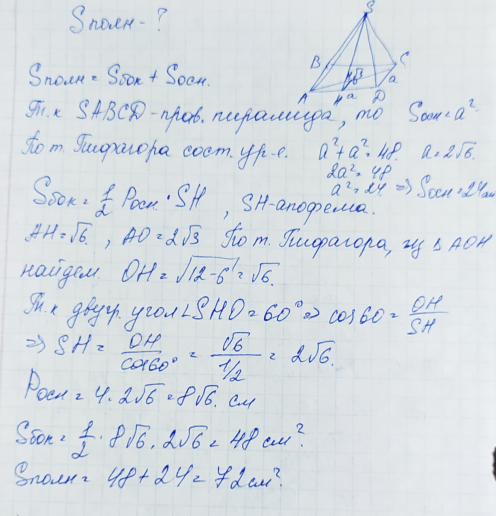 Sполн - ?
S
B C
4√3 a
A H a D
Sполн = Sбок + Sосн.
Т.к SABCD - прав. пирамида, то Sосн = a²
По т. Пифагора сост. ур-е. a² + a² = 48. a = 2√6.
2a² = 48
a² = 24 => Sосн = 24 см
Sбок = 1/2 Pосн · SH , SH - апофема.
AH = √6 , AO = 2√3 По т. Пифагора, из Δ AOH
найдем OH = √12-6 = √6.
Т.к двугр. угол ∠SHO = 60° => cos60 = OH/SH
=> SH = OH/cos60° = √6/1/2 = 2√6.
Pосн = 4 · 2√6 = 8√6. см
Sбок = 1/2 · 8√6 · 2√6 = 48 см².
Sполн = 48 + 24 = 72 см².